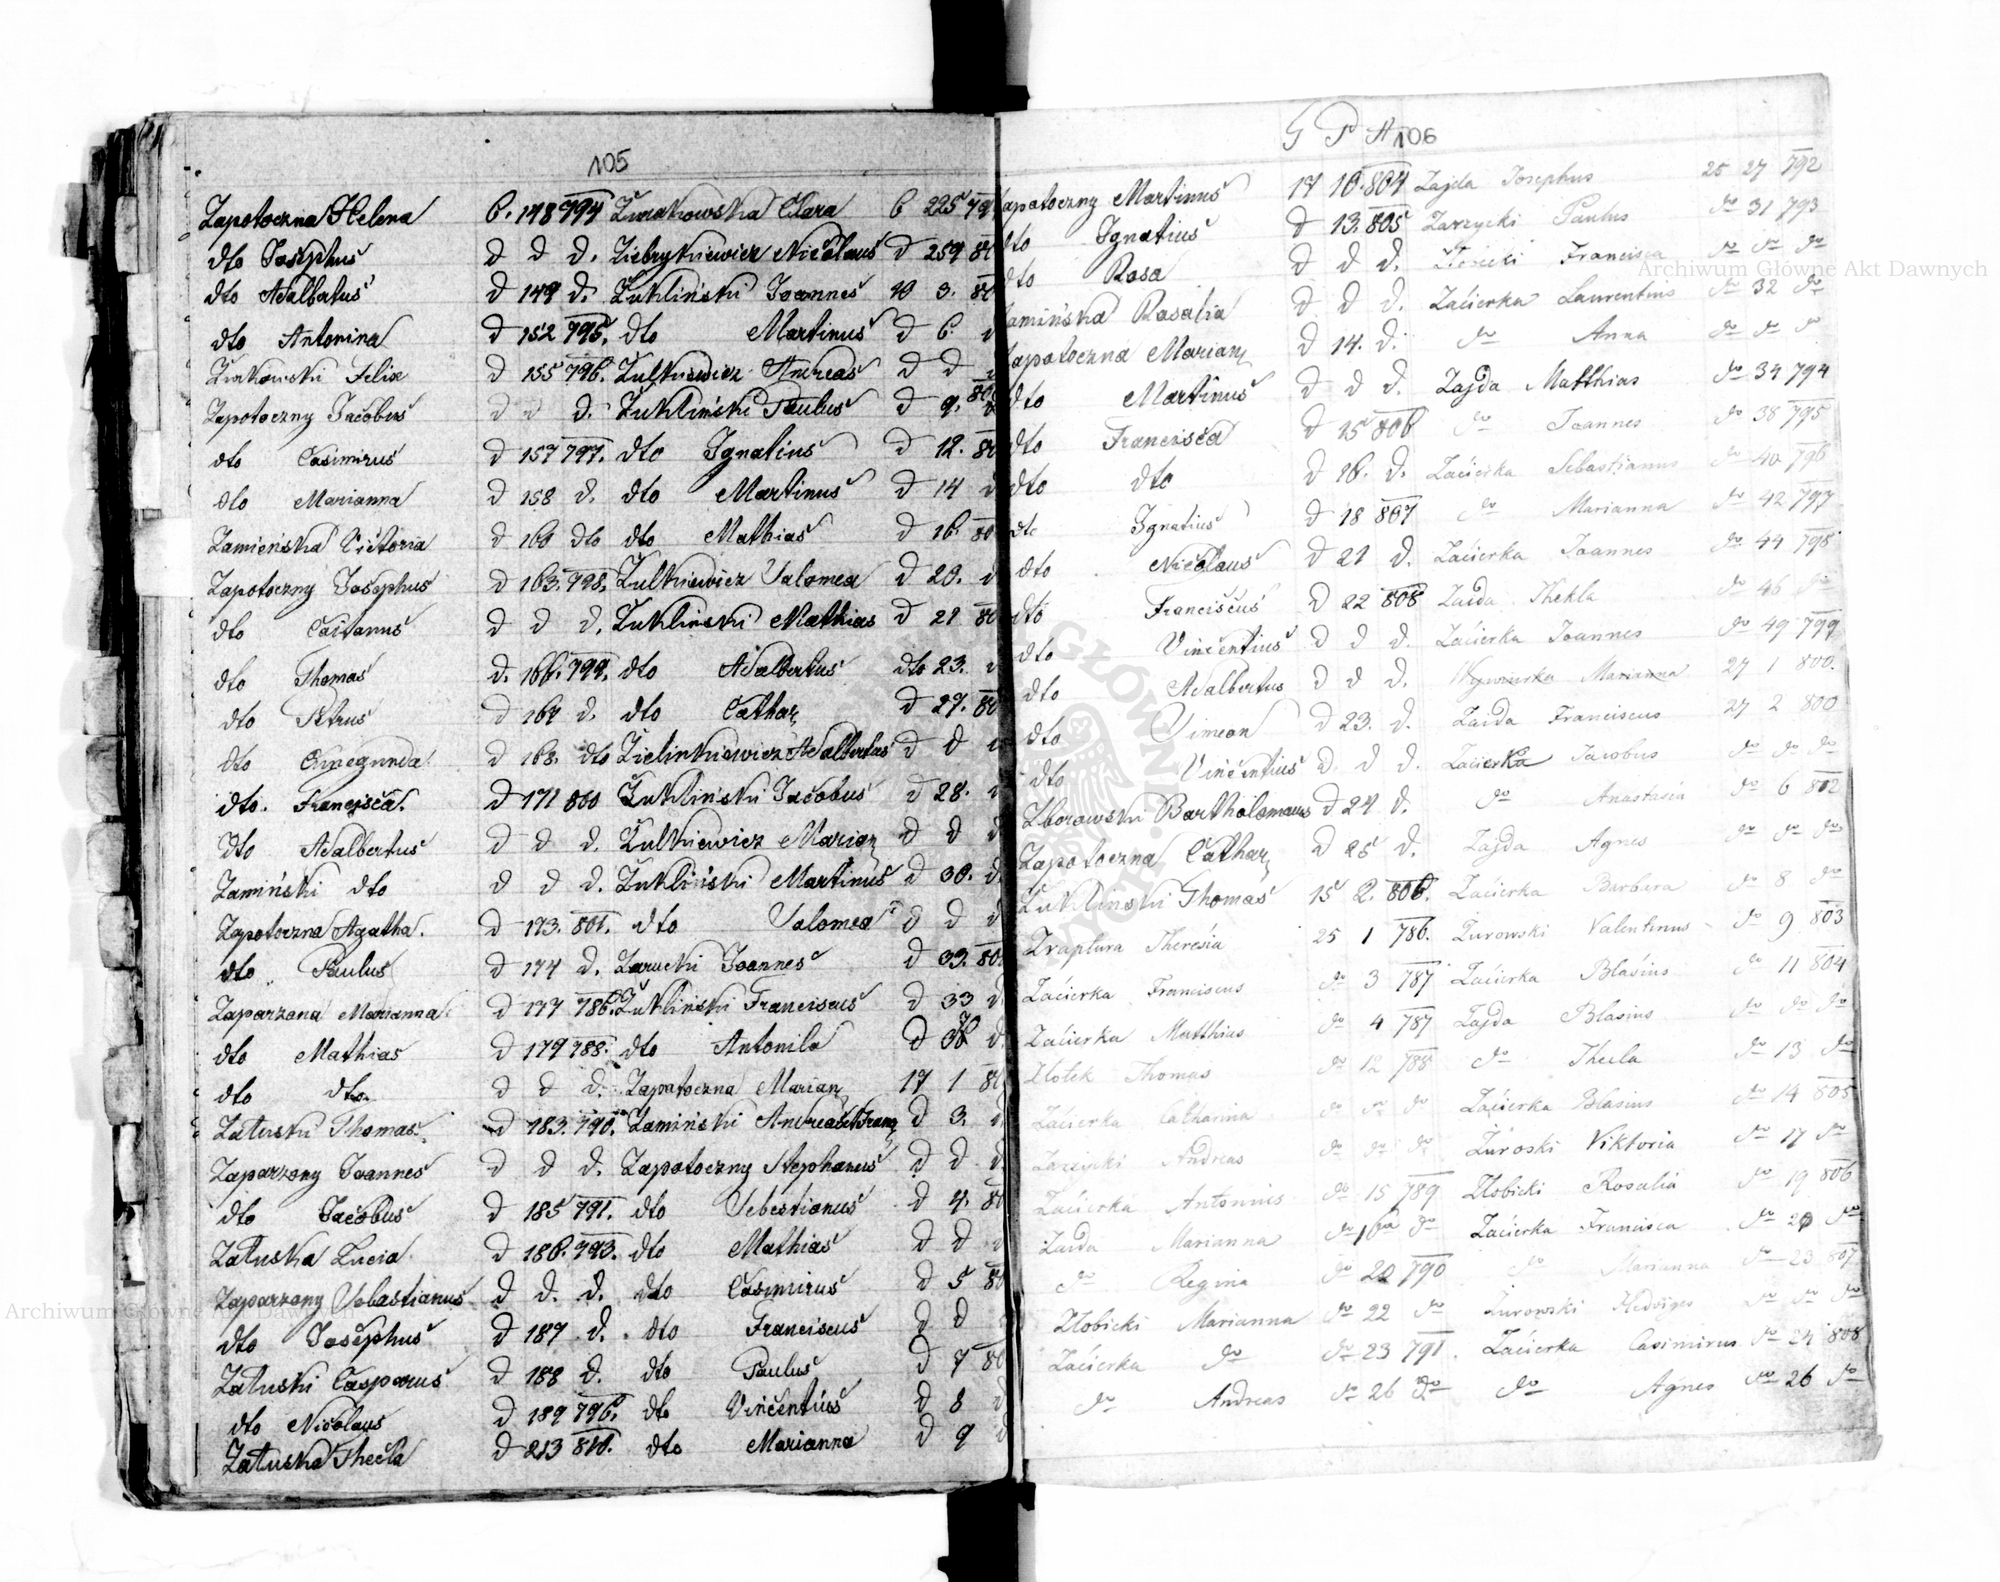 105
Zapotoczna Helena 6. 148 794 Żurakowska Clara 6 225 79
dto Josephus d d d. Ziebrykiewicz Nicolaus d 259 80
dto Adalbertus d 149 d. Żukliński Joannes 10 3. 80
dto Antonina d 152 795. dto Martinus d 6. d
Żurakowski Felix d 155 796. Żulkiewicz Andreas d d
Zapotoczny Jacobus d d d. Żukliński Paulus d 9. 80
dto Casimirus d 157 797. dto Ignatius d 12. 80
dto Marianna d 158 d. dto Martinus d 14 d
Zamieńska Victoria d 160 dto dto Mathias d 16. 80
Zapotoczny Josephus d 163. 798. Żulkiewicz Salomea d 20. d
dto Caitanus d d d. Żukliński Mathias d 21 80
dto Thomas d. 166. 799. dto Adalbertus dto 23. d
dto Petrus d 167 d. dto Cathar d 27. 80
dto Cunegunda d 168. dto Zielinkiewicz Adalbertus d d d
dto. Francisca. d 171 800 Żukliński Jacobus d 28. d
dto Adalbertus d d d. Żulkiewicz Marian d d d
Zamiński dto d d d. Żukliński Martinus d 30. d.
Zapotoczna Agatha. d 173. 801. dto Salomea d d d
dto Paulus d 174 d. Zarucki Joannes d 33. 80
Zaparzana Marianna d 177 786. Żukliński Franciscus d 33 d
dto Mathias d 179 788. dto Antonila d d.
dto dto d d d. Zapotoczna Marian 17 1 80
Załuski Thomas. d 183. 790. Zamiński Andreas d 3. d
Zaparzony Joannes d d d. Zapotoczny Stephanus d d d
dto Jacobus d 185 791. dto Sebestianus d 4. 80
Załuska Lucia d 186. 793. dto Mathias d d
Zaparzony Sebastianus d. d. d. dto Casimirus d 5 80
dto Josephus d 187 d. dto Franciscus d d
Załuski Casparus d 188 d. dto Paulus d 7 80
dto Nicolaus d 189 796. dto Vincentius d 8 d
Załuska Thecla d 213 810. dto Marianna d 9 d
G P A 106
apotoczny Martinus 17 10. 804 Zajda Josephus 25 27 792
dto Ignatius d 13. 805 Zarzycki Paulus do 31 793
dto Rosa d d d. Francisca do do do
amińska Rosalia d d d. Zaćierka Laurentius do 32 do
apotoczna Marian d 14. d. do Anna do do do
dto Martinus d d d. Zajda Matthias do 34 794
dto Francisca d 15 806 do Joannes do 38 795
dto dto d 16. d. Zaćierka Sebastianus do 40 796
dto Ignatius d 18 807 do Marianna do 42 797
dto Nicolaus d 21 d. Zaćierka Joannes do 44 798
dto Franciscus d 22 808 Zaida Thekla do 46 do
dto Vincentius d d d. Zaćierka Joannes do 49 799
dto Adalbertus d d d. Marianna 27 1 800.
dto Simeon d 23. d. Zaida Franciscus 27 2 800
dto Vincentius d. d d. Zaćierka Jacobus do do do
Zborowski Bartholomaeus d 24 d. do Anastasia do 6 802
Zapotoczna Cathar d 25 d. Zajda Agnes do do do
Żukliński Thomas 15 2. 806. Zaćierka Barbara do 8 do
Zraptura Theresia 25 1 786. Żurowski Valentinus do 9 803
Zaćierka Franciscus do 3 787 Zaćierka Blasius do 11 804
Zaćierka Matthias do 4 787 Zajda Blasius do do do
Złotek Thomas do 12 788 do Thecla do 13 do
Zaćierka Catharina do do do Zaćierka Blasius do 14 805
Zarzycki Andreas do do do Żuroski Viktoria do 17 do
Zaćierka Antonius do 15 789 Złobicki Rosalia do 19 806
Zaida Marianna do do Zaćierka Francisca do 20 do
do Regina do 20 790 do Marianna do 23 807
Złobicki Marianna do 22 do Żurowski Hedviges do do do
Zaćierka do do 23 791. Zaćierka Casimirus do 24 808
do Andreas do 26 do do Agnes do 26 do
Archiwum Główne Akt Dawnych
Archiwum Główne Akt Dawnych